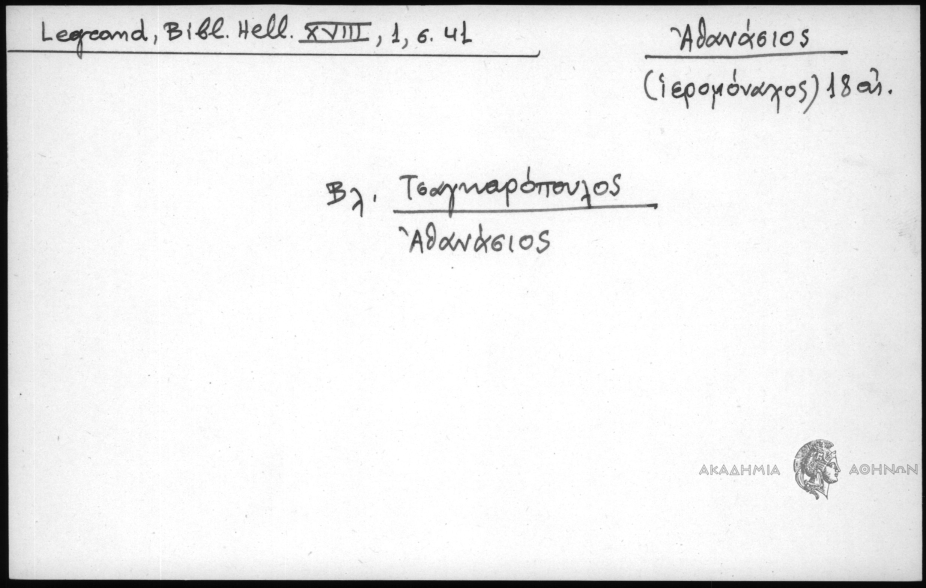 Legrand, Bibl. Hell. XVIII, 1, σ. 41
Ἀθανάσιος
(ἱερομόναχος) 18 αἰ.
Βλ. Τσαγκαρόπουλος
Ἀθανάσιος
ΑΚΑΔΗΜΙΑ ΑΘΗΝΩΝ